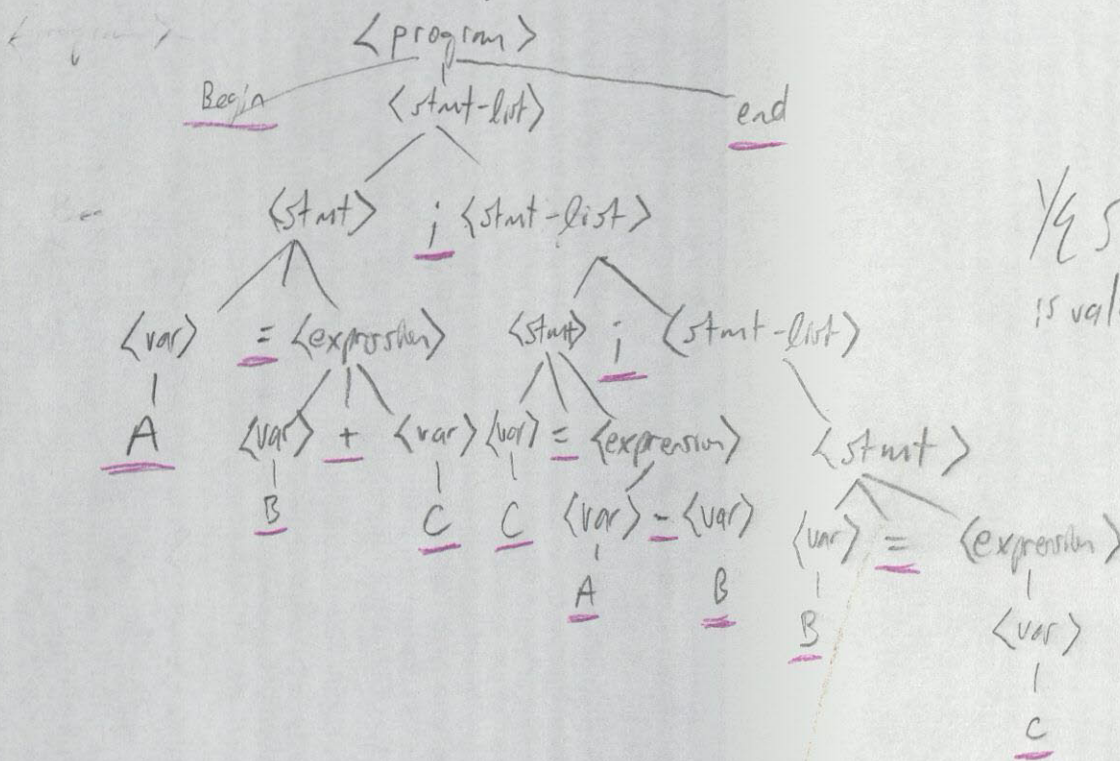 <program>
<program>
Begin <stmt-list> end
<stmt> ; <stmt-list>
<var> = <expression> <stmt> ; <stmt-list>
A <var> + <var> <var> = <expression> <stmt>
B C C <var> - <var> <var> = <expression>
A B B <var>
C
YES
is val